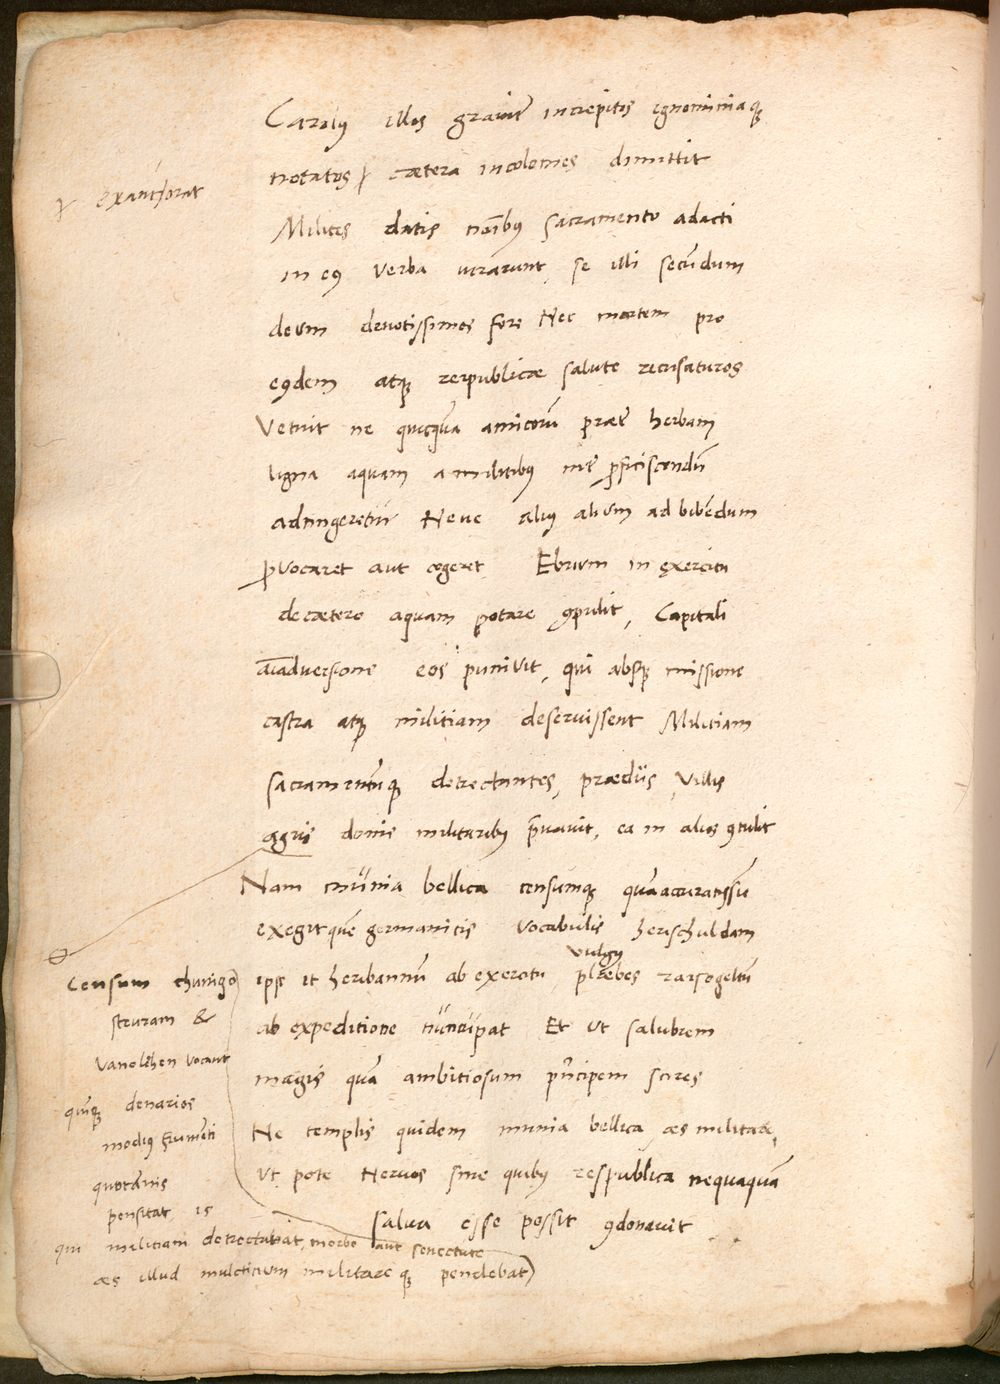 Carolus illos gravit̄ increpitos ignominiaq;
notatos ꝭ cætera incolomes dimittit
ꝭ exauthorat
Milites datis nōībus sacramento adacti
in eius verba iurarunt, se illi secūdum
deum devotissimos fore Nec mortem pro
eiusdem atq; reipublicæ salute recusaturos
Vetuit ne quisquā amicorū præt̄ herbam
ligna aquam a militibus int̄ proficiscendū
adungeretur Neve alius alium ad bibēdum
provocaret aut cogeret Ebrium in exercitu
de cætero aquam potare cōpulit, Capitali
āīadversione eos punivit, qui absq; missione
castra atq; militiam deseruissent Militiam
sacramentūq; detrectantes, prædiis, villis
agris donis militaribus privavit, ea in alios cōtulit
Nam munia bellica censumq; quā accuratissī
exegit quē germanicis vocabulis herischuldam
vulgus
ipse et heribannū ab exercitu plæbes raisogeltū
ab expeditione nuncupat Et ut salubrem
magis quā ambitiosum principem scires
Ne templis quidem munia bellica, æs militare,
Ut pote nervos sine quibus respublica nequaquā
salva esse possit cōdonavit
Censum chunigo
steuram &
vanolehen vocant
quiq; denarios
modius frumēti
quotānis
pensitat, is
qui militiam detrectabat, morbo aut senectute
æs illud mulcticium militare q; pendebat)